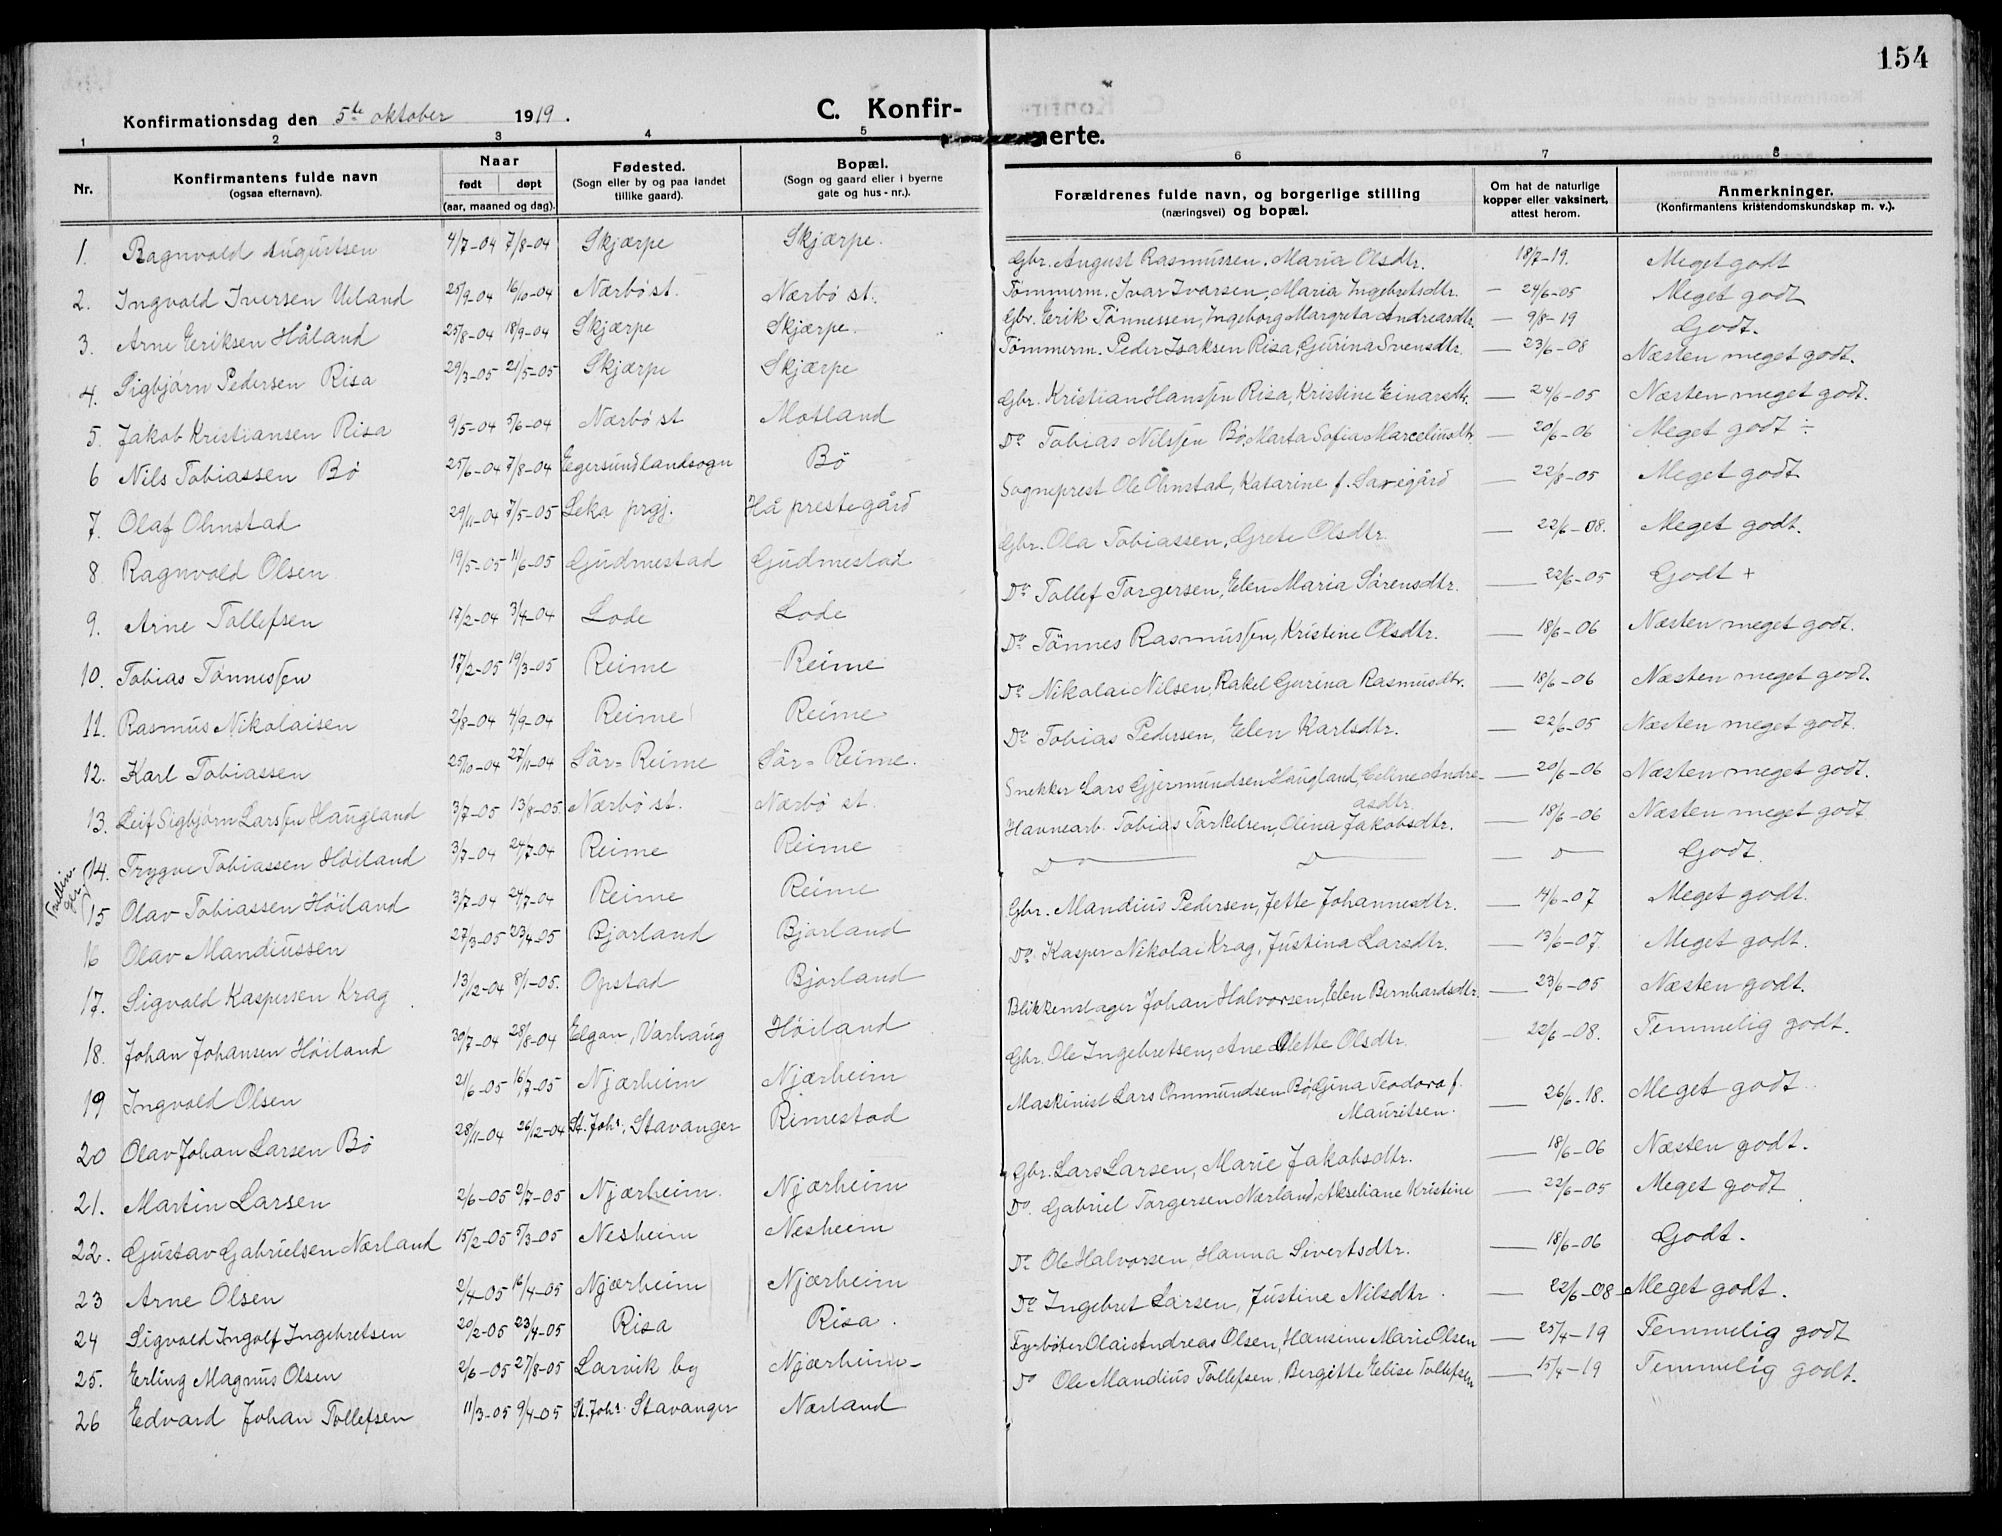 154
Konfirmationsdag den 5te oktober 1919.
C. Konfirmerte.
1 2 3 4 5 6 7 8
Nr. | Konfirmantens fulde navn (ogsaa efternavn). | Naar født døpt (aar, maaned og dag). | Fødested. (Sogn eller by og paa landet tillike gaard). | Bopæl. (Sogn og gaard eller i byerne gate og hus-nr.). | Forældrenes fulde navn, og borgerlige stilling (næringsvei) og bopæl. | Om hat de naturlige kopper eller vaksinert, attest herom. | Anmerkninger. (Konfirmantens kristendomskundskap m. v.).
1. Ragnvald Augustsen 4/7-04 7/8-04 Skjærpe Skjærpe. Gbr. August Rasmussen. Maria Olsdtr. 18/7-19. Meget godt
2. Ingvald Iversen Ueland 25/9-04 16/10-04 Nærbö st. Nærbö st. Tömmerm. Ivar Ivarsen, Maria Ingebretsdtr. — 24/6-05 Meget godt
3. Arne Eriksen Håland 25/8-04 18/9-04 Skjærpe Skjærpe. Gbr. Erik Tönnessen, Ingeborg Margreta Andreasdtr. — 9/8-19 Godt.
4. Sigbjörn Pedersen Risa 29/3-05 21/5-05 Skjærpe Skjærpe Tömmerm. Peder Isaksen Risa, Gurina Svensdtr. — 23/6-08 Næsten meget godt.
5. Jakob Kristiansen Risa 9/5-04 5/6-04 Nærbö st Motland Gbr. Kristian Hanssen Risa, Kristine Einarsdtr. — 24/6-05 Næsten meget godt.
6 Nils Tobiassen Bö 25/6-04 7/8-04 Egersund landsogn Bö Do Tobias Nilssen Bö, Marta Sofia Marceliusdtr — 20/6-06 Meget godt ÷
7. Olaf Olmstad 29/11-04 7/5-05 Leka prgj. Hå prestegård Sogneprest Ole Olmstad, Katarine f. Saxegård — 22/8-05 Meget godt
8. Ragnvald Olsen 19/5-05 11/6-05 Gudmestad Gudmestad Gbr. Ola Tobiassen, Grete Olsdtr. — 22/6-08. Meget godt.
9. Arne Tollefsen 17/2-04 3/4-04 Lode Lode Do Tollef Torgersen, Elen Maria Sörensdtr. — 22/6-05 Godt +
10. Tobias Tönnessen 17/2-05 19/3-05 Reime Reime Do Tönnes Rasmussen, Kristine Olsdtr. — 18/6-06 Næsten meget godt.
11. Rasmus Nikolaisen 2/8-04 4/9-04 Reime Reime Do Nikolai Nilsen, Rakel Gurina Rasmusdtr. — 18/6-06 Næsten meget godt.
12. Karl Tobiassen 25/10-04 27/11-04 Sör-Reime Sör-Reime. Do Tobias Pedersen, Elen Karlsdtr. — 22/6-05 Næsten meget godt.
13. Leif Sigbjörn Larssen Haugland 3/7-05 13/8-05 Nærbö st. Nærbö st. Snekker Lars Gjermundsen Haugland, Celine Andreasdtr. — 20/6-06 Næsten meget godt.
Trillinger
14. Trygve Tobiassen Höiland 3/7-04 24/7-04 Reime Reime Havnearb. Tobias Torkelsen, Olina Jakobsdtr. — 18/6-06 Næsten meget godt
15 Olav Tobiassen Höiland 3/7-04 24/7-04 Reime Reime Do — D — D — Godt.
16 Olav Mandiussen 27/3-05 23/4-05 Bjorland Bjorland Gbr. Mandius Pedersen, Jette Johannesdtr. — 14/6-07 Meget godt.
17. Sigvald Kaspersen Krag 13/12-04 8/1-05. Opstad Bjorland Do. Kasper Nikolai Krag, Justina Larsdtr. — 13/6-07. Meget godt.
18. Johan Johansen Höiland 30/7-04 28/8-04 Elgan, Varhaug Höiland Blikkenslager Johan Halvorsen, Elen Bernhardsdtr. — 23/6-05 Næsten godt.
19 Ingvald Olsen 21/6-05 16/7-05 Njærheim Njærheim Gbr. Ole Ingebretsen, Ane Olette Olsdtr. — 22/6-08. Temmelig godt.
20 Olav Johan Larsen Bö 28/11-04 26/12-04 St. Johs. Stavanger Rimestad Maskinist Lars Ommundsen Bö, Gina Teodora f. Mauritsen. — 26/6-18. Meget godt.
21. Martin Larsen 2/6-05 2/7-05 Njærheim. Njærheim Gbr. Lars Larsen, Marie Jakobsdtr. — 18/6-06 Næsten godt.
22. Gustav Gabrielsen Nærland 15/2-05 5/3-05 Nesheim Nesheim Do. Gabriel Torgersen Nærland, Akseliane Kristine — 22/6-05 Meget godt
23 Arne Olsen 2/4-05 16/4-05 Njærheim Njærheim Do Ole Halvorsen, Hanna Sivertsdtr. — 18/6-06 Godt.
24 Sigvald Ingolf Ingebretsen 20/2-05 23/4-05 Risa Risa. Do Ingebret Larsen, Justine Nilsdtr. — 22/6-08 Meget godt.
25. Erling Magnus Olsen 2/6-05 27/8-05 Larvik by Njærheim Fyrböter Olai Andreas Olsen, Hansine Marie Olsen — 25/4-19 Temmelig godt
26 Edvard Johan Tollefsen 11/3-05 9/4-05 St. Johs. Stavanger Nærland Do Ole Mandius Tollefsen, Bergitte Elise Tollefsen — 15/4-19 Temmelig godt.